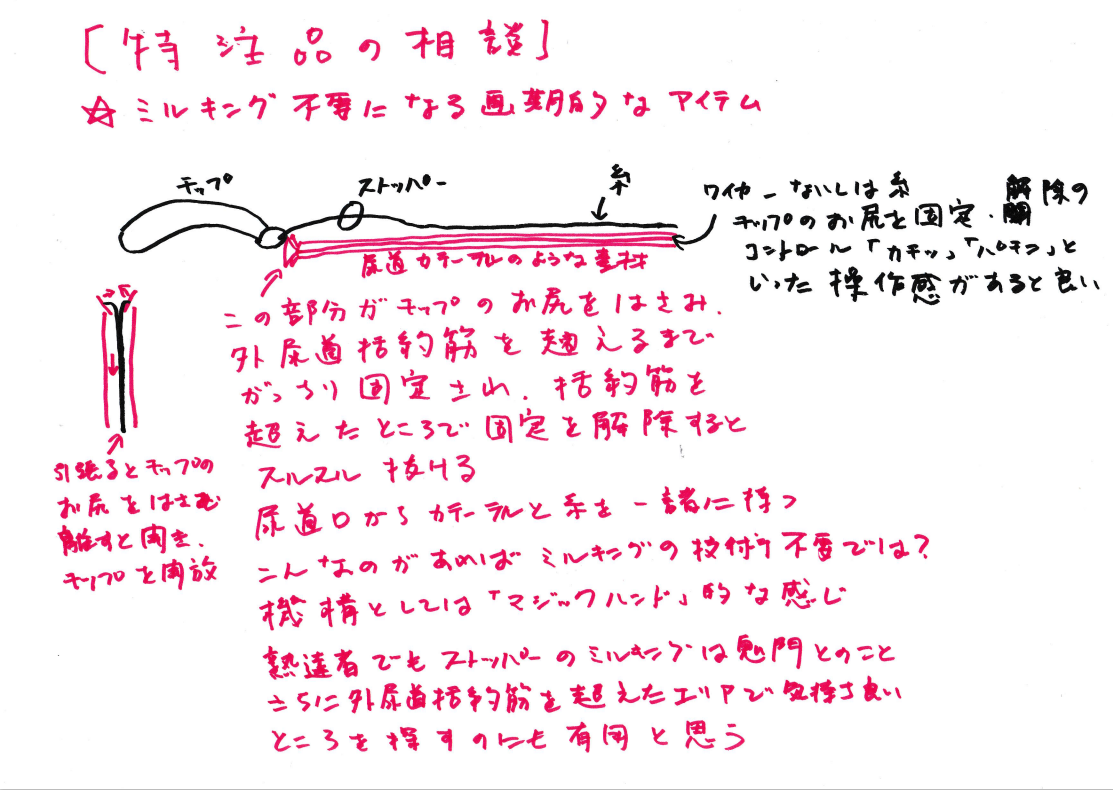 [特注品の相談]
☆ミルキング不要になる画期的なアイテム
チップ
ストッパー
糸
ワイヤーないしは糸
チップのお尻を固定・解除の
コントロール「カチッ」「パチン」と
いった操作感があると良い
尿道カテーテルのような素材
この部分がチップのお尻をはさみ、
外尿道括約筋を超えるまで
がっちり固定され、括約筋を
超えたところで固定を解除すると
スルスル抜ける
尿道口からカテーテルと糸を一諸に持つ
こんなのがあればミルキングの技術不要では?
機構としては「マジックハンド」的な感じ
引張るとチップの
お尻をはさむ
離すと開き、
チップを開放
熟達者でもストッパーのミルキングは鬼門とのこと
さらに外尿道括約筋を超えたエリアで気持ち良い
ところを探すのにも有用と思う